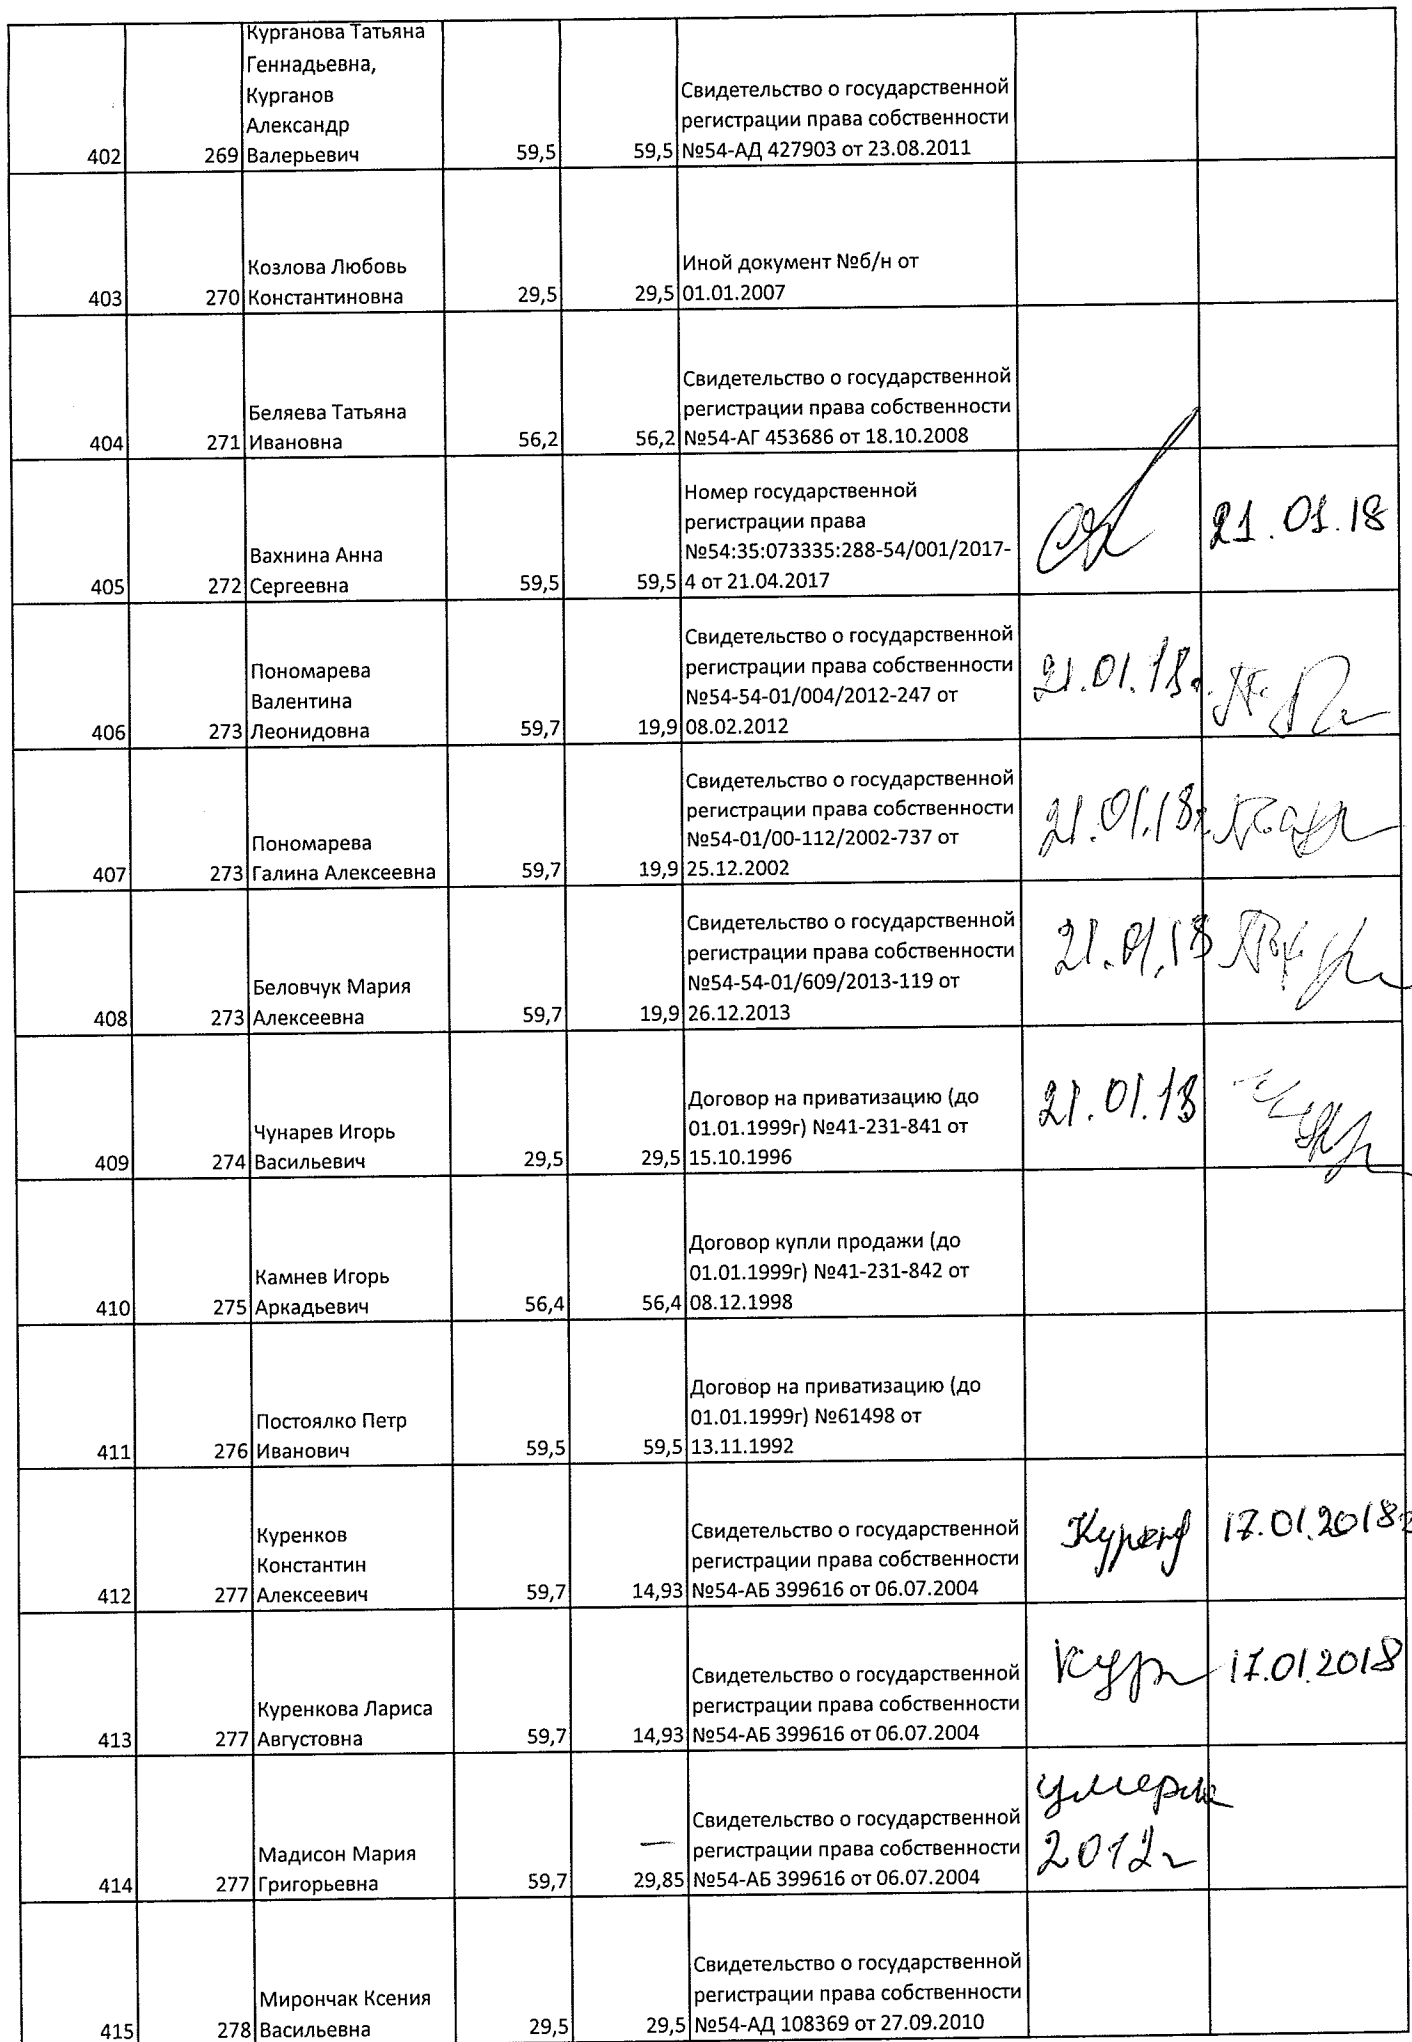 Курганова Татьяна
Геннадьевна,
Курганов
Александр
402 269 Валерьевич 59,5 59,5
Свидетельство о государственной
регистрации права собственности
№54-АД 427903 от 23.08.2011
Козлова Любовь
403 270 Константиновна 29,5 29,5
Иной документ №б/н от
01.01.2007
Беляева Татьяна
404 271 Ивановна 56,2 56,2
Свидетельство о государственной
регистрации права собственности
№54-АГ 453686 от 18.10.2008
Вахнина Анна
405 272 Сергеевна 59,5 59,5
Номер государственной
регистрации права
№54:35:073335:288-54/001/2017-
4 от 21.04.2017
21.01.18
Пономарева
Валентина
406 273 Леонидовна 59,7 19,9
Свидетельство о государственной
регистрации права собственности
№54-54-01/004/2012-247 от
08.02.2012
21.01.18г.
Пономарева
407 273 Галина Алексеевна 59,7 19,9
Свидетельство о государственной
регистрации права собственности
№54-01/00-112/2002-737 от
25.12.2002
21.01.18г
Беловчук Мария
408 273 Алексеевна 59,7 19,9
Свидетельство о государственной
регистрации права собственности
№54-54-01/609/2013-119 от
26.12.2013
21.01.18
Чунарев Игорь
409 274 Васильевич 29,5 29,5
Договор на приватизацию (до
01.01.1999г) №41-231-841 от
15.10.1996
21.01.18
Камнев Игорь
410 275 Аркадьевич 56,4 56,4
Договор купли продажи (до
01.01.1999г) №41-231-842 от
08.12.1998
Постоялко Петр
411 276 Иванович 59,5 59,5
Договор на приватизацию (до
01.01.1999г) №61498 от
13.11.1992
Куренков
Константин
412 277 Алексеевич 59,7 14,93
Свидетельство о государственной
регистрации права собственности
№54-АБ 399616 от 06.07.2004
17.01.2018г
Куренкова Лариса
413 277 Августовна 59,7 14,93
Свидетельство о государственной
регистрации права собственности
№54-АБ 399616 от 06.07.2004
Кур 17.01.2018
Мадисон Мария
414 277 Григорьевна 59,7 — 29,85
Свидетельство о государственной
регистрации права собственности
№54-АБ 399616 от 06.07.2004
умерла
2012г
Мирончак Ксения
415 278 Васильевна 29,5 29,5
Свидетельство о государственной
регистрации права собственности
№54-АД 108369 от 27.09.2010